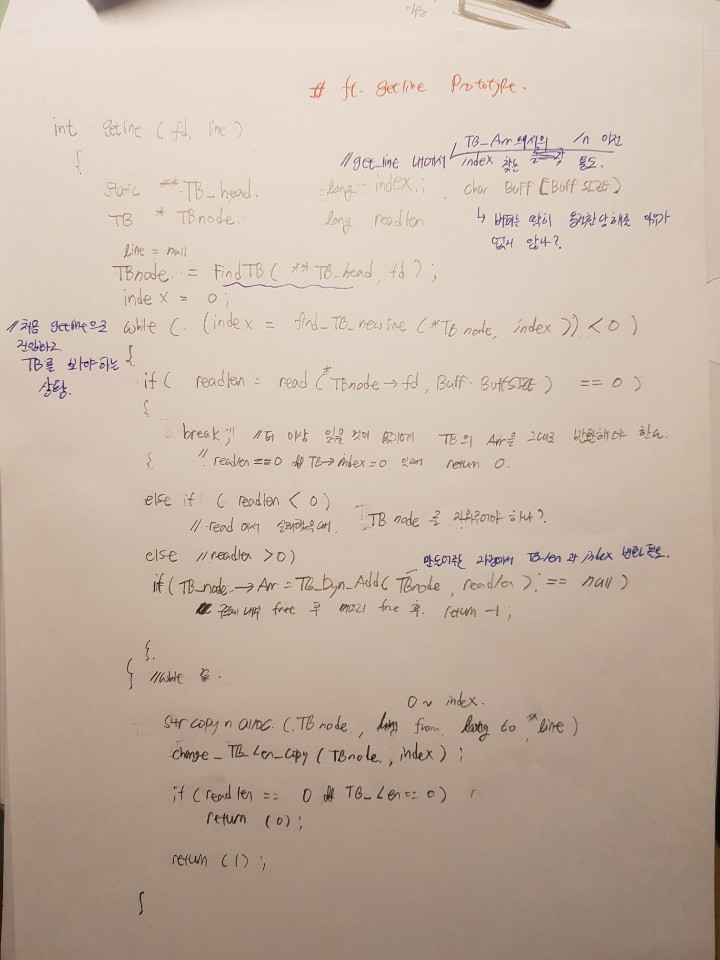 # ft- getline Prototype.
int getline ( fd, line )
{
TB_Arr 에서의 /n 이전
// get_line 내에서 index 찾는 용도.
static **TB_head. long index ; , char Buff [Buff SIZE]
TB * TBnode. long readlen
↳ 버퍼는 딱히 동적할당해줄 이유가
없지 않나?.
line = null
TBnode. = FindTB ( ** TB_head, fd ) ;
index = 0 ;
// 처음 getline으로
진입하고
TB를 봐야하는
상황.
while ( . (index = find_TB_newline (*TB node, index )) < 0 )
{
if ( readlen = read (*TBnode → fd, Buff. BuffSIZE ) == 0 )
{
break ; // 더 이상 읽을 것이 없기에 TB의 Arr을 그대로 반환해야 한다.
} // readlen == 0 && TB → index = 0 일때 return 0.
else if ( readlen < 0 )
// read 에서 실패했을때. TB node 를 지워주어야 하나?.
else // readlen > 0 )
만들어주는 과정에서 TB_len 과 index 변환 필요.
if ( TB_node → Arr = TB_Dyn_Add( TBnode , readlen ) == null )
내부 free 후 free 후. return -1 ;
}.
} // while 끝.
0 ~ index.
str copy n alloc. ( .TB node. , from, long to , *line )
change _ TB_Len_copy ( TBnode. , index ) ;
if ( readlen == 0 && TB_Len == 0 )
return (0) ;
return (1) ;
}